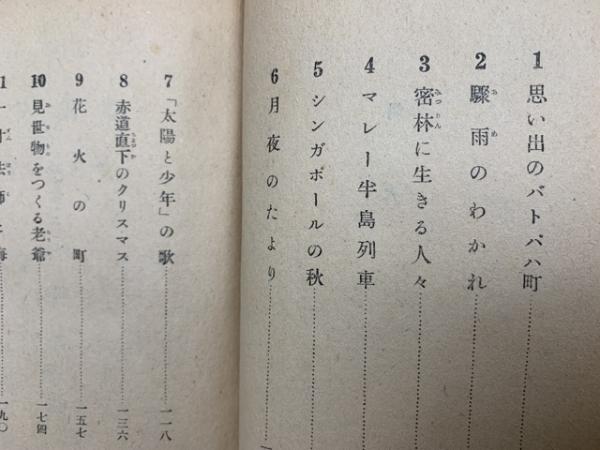 1 思い出のバトパハ町
2 驟雨のわかれ
3 密林に生きる人々
4 マレー半島列車
5 シンガポールの秋
6 月夜のたより
7 「太陽と少年」の歌 一一八
8 赤道直下のクリスマス 一三六
9 花火の町 一五七
10 見世物をつくる老爺 一七四
一寸法師と海 一九〇